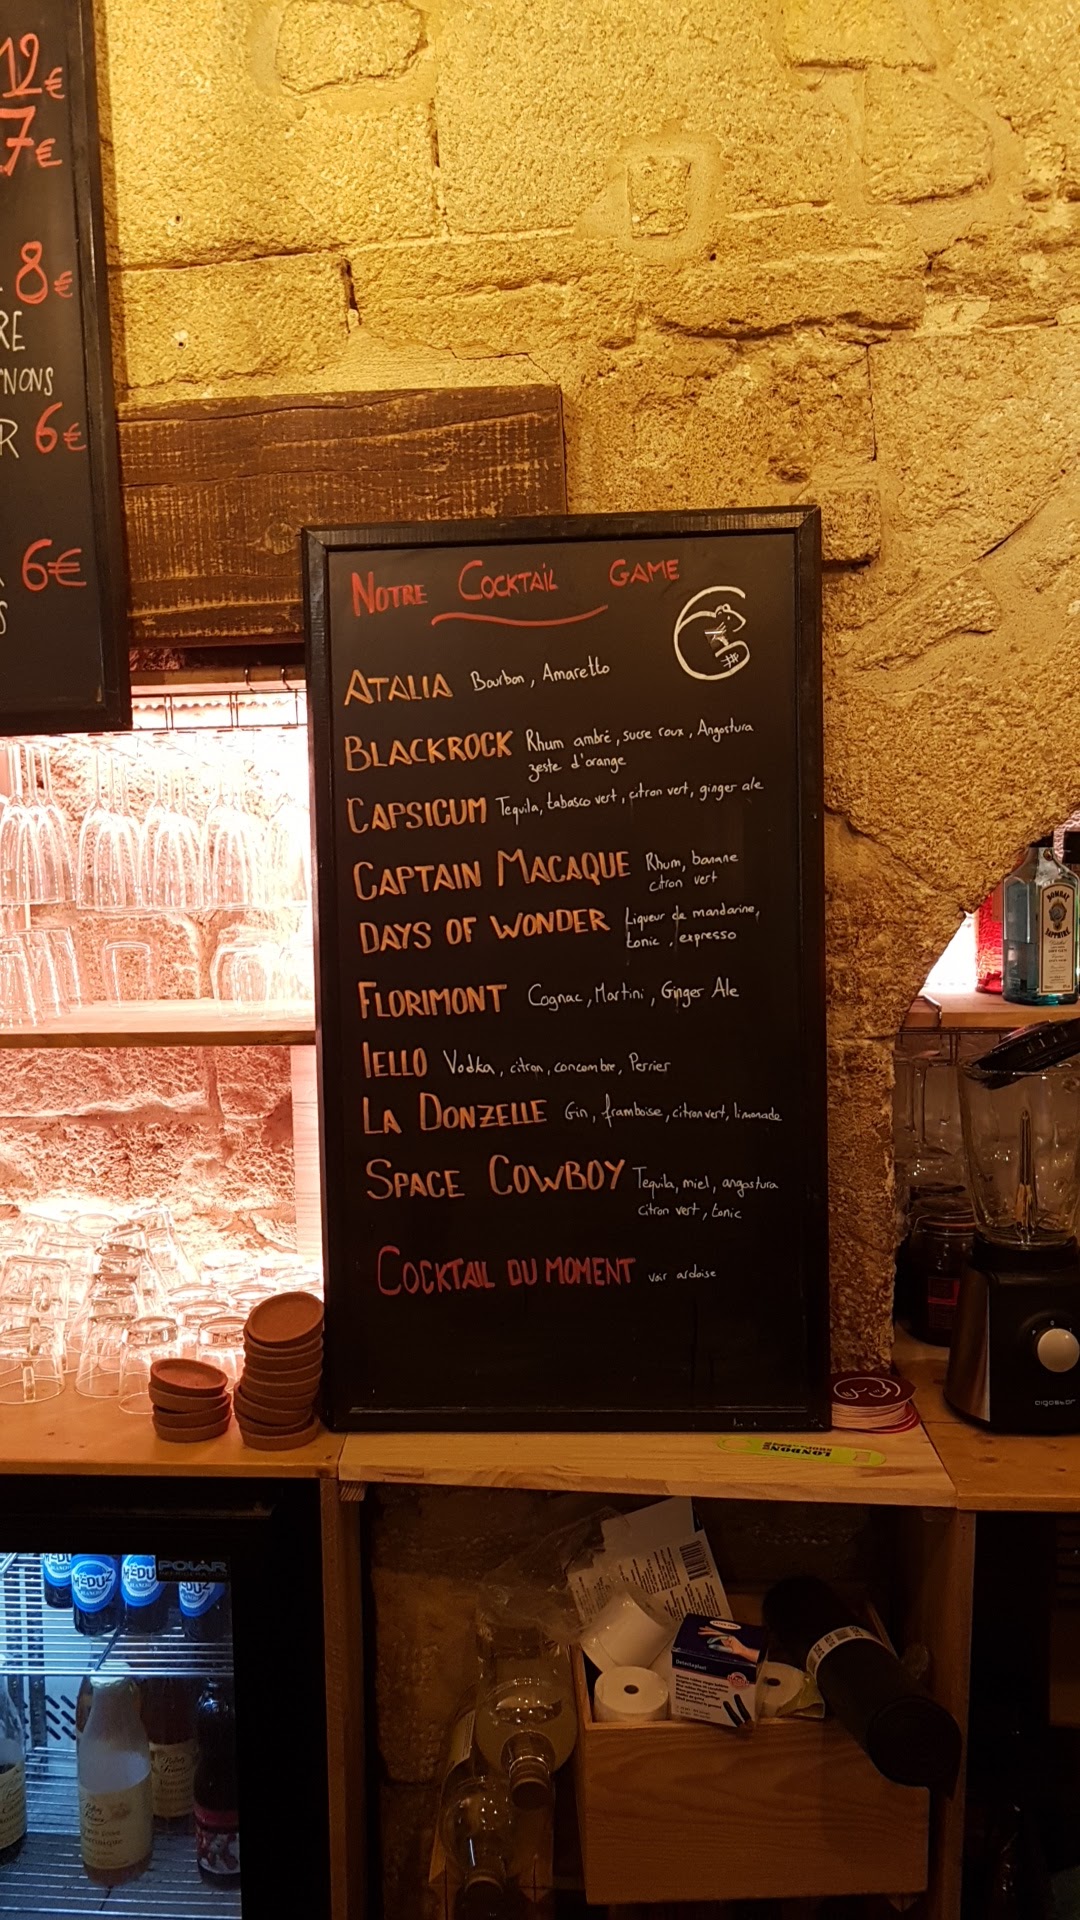 12€
7€
8€
RE
NONS
R 6€
6€
S
NOTRE COCKTAIL GAME
ATALIA Bourbon, Amaretto
BLACKROCK Rhum ambré, sucre roux, Angostura
zeste d'orange
CAPSICUM Tequila, tabasco vert, citron vert, ginger ale
CAPTAIN MACAQUE Rhum, banane
citron vert
DAYS OF WONDER Liqueur de mandarine,
tonic, expresso
FLORIMONT Cognac, Martini, Ginger Ale
IELLO Vodka, citron, concombre, Perrier
LA DONZELLE Gin, framboise, citron vert, limonade
SPACE COWBOY Tequila, miel, angostura
citron vert, tonic
COCKTAIL DU MOMENT voir ardoise
BOMBAY
SAPPHIRE
aigostar
LONDON
POLAR
MÉDUZ